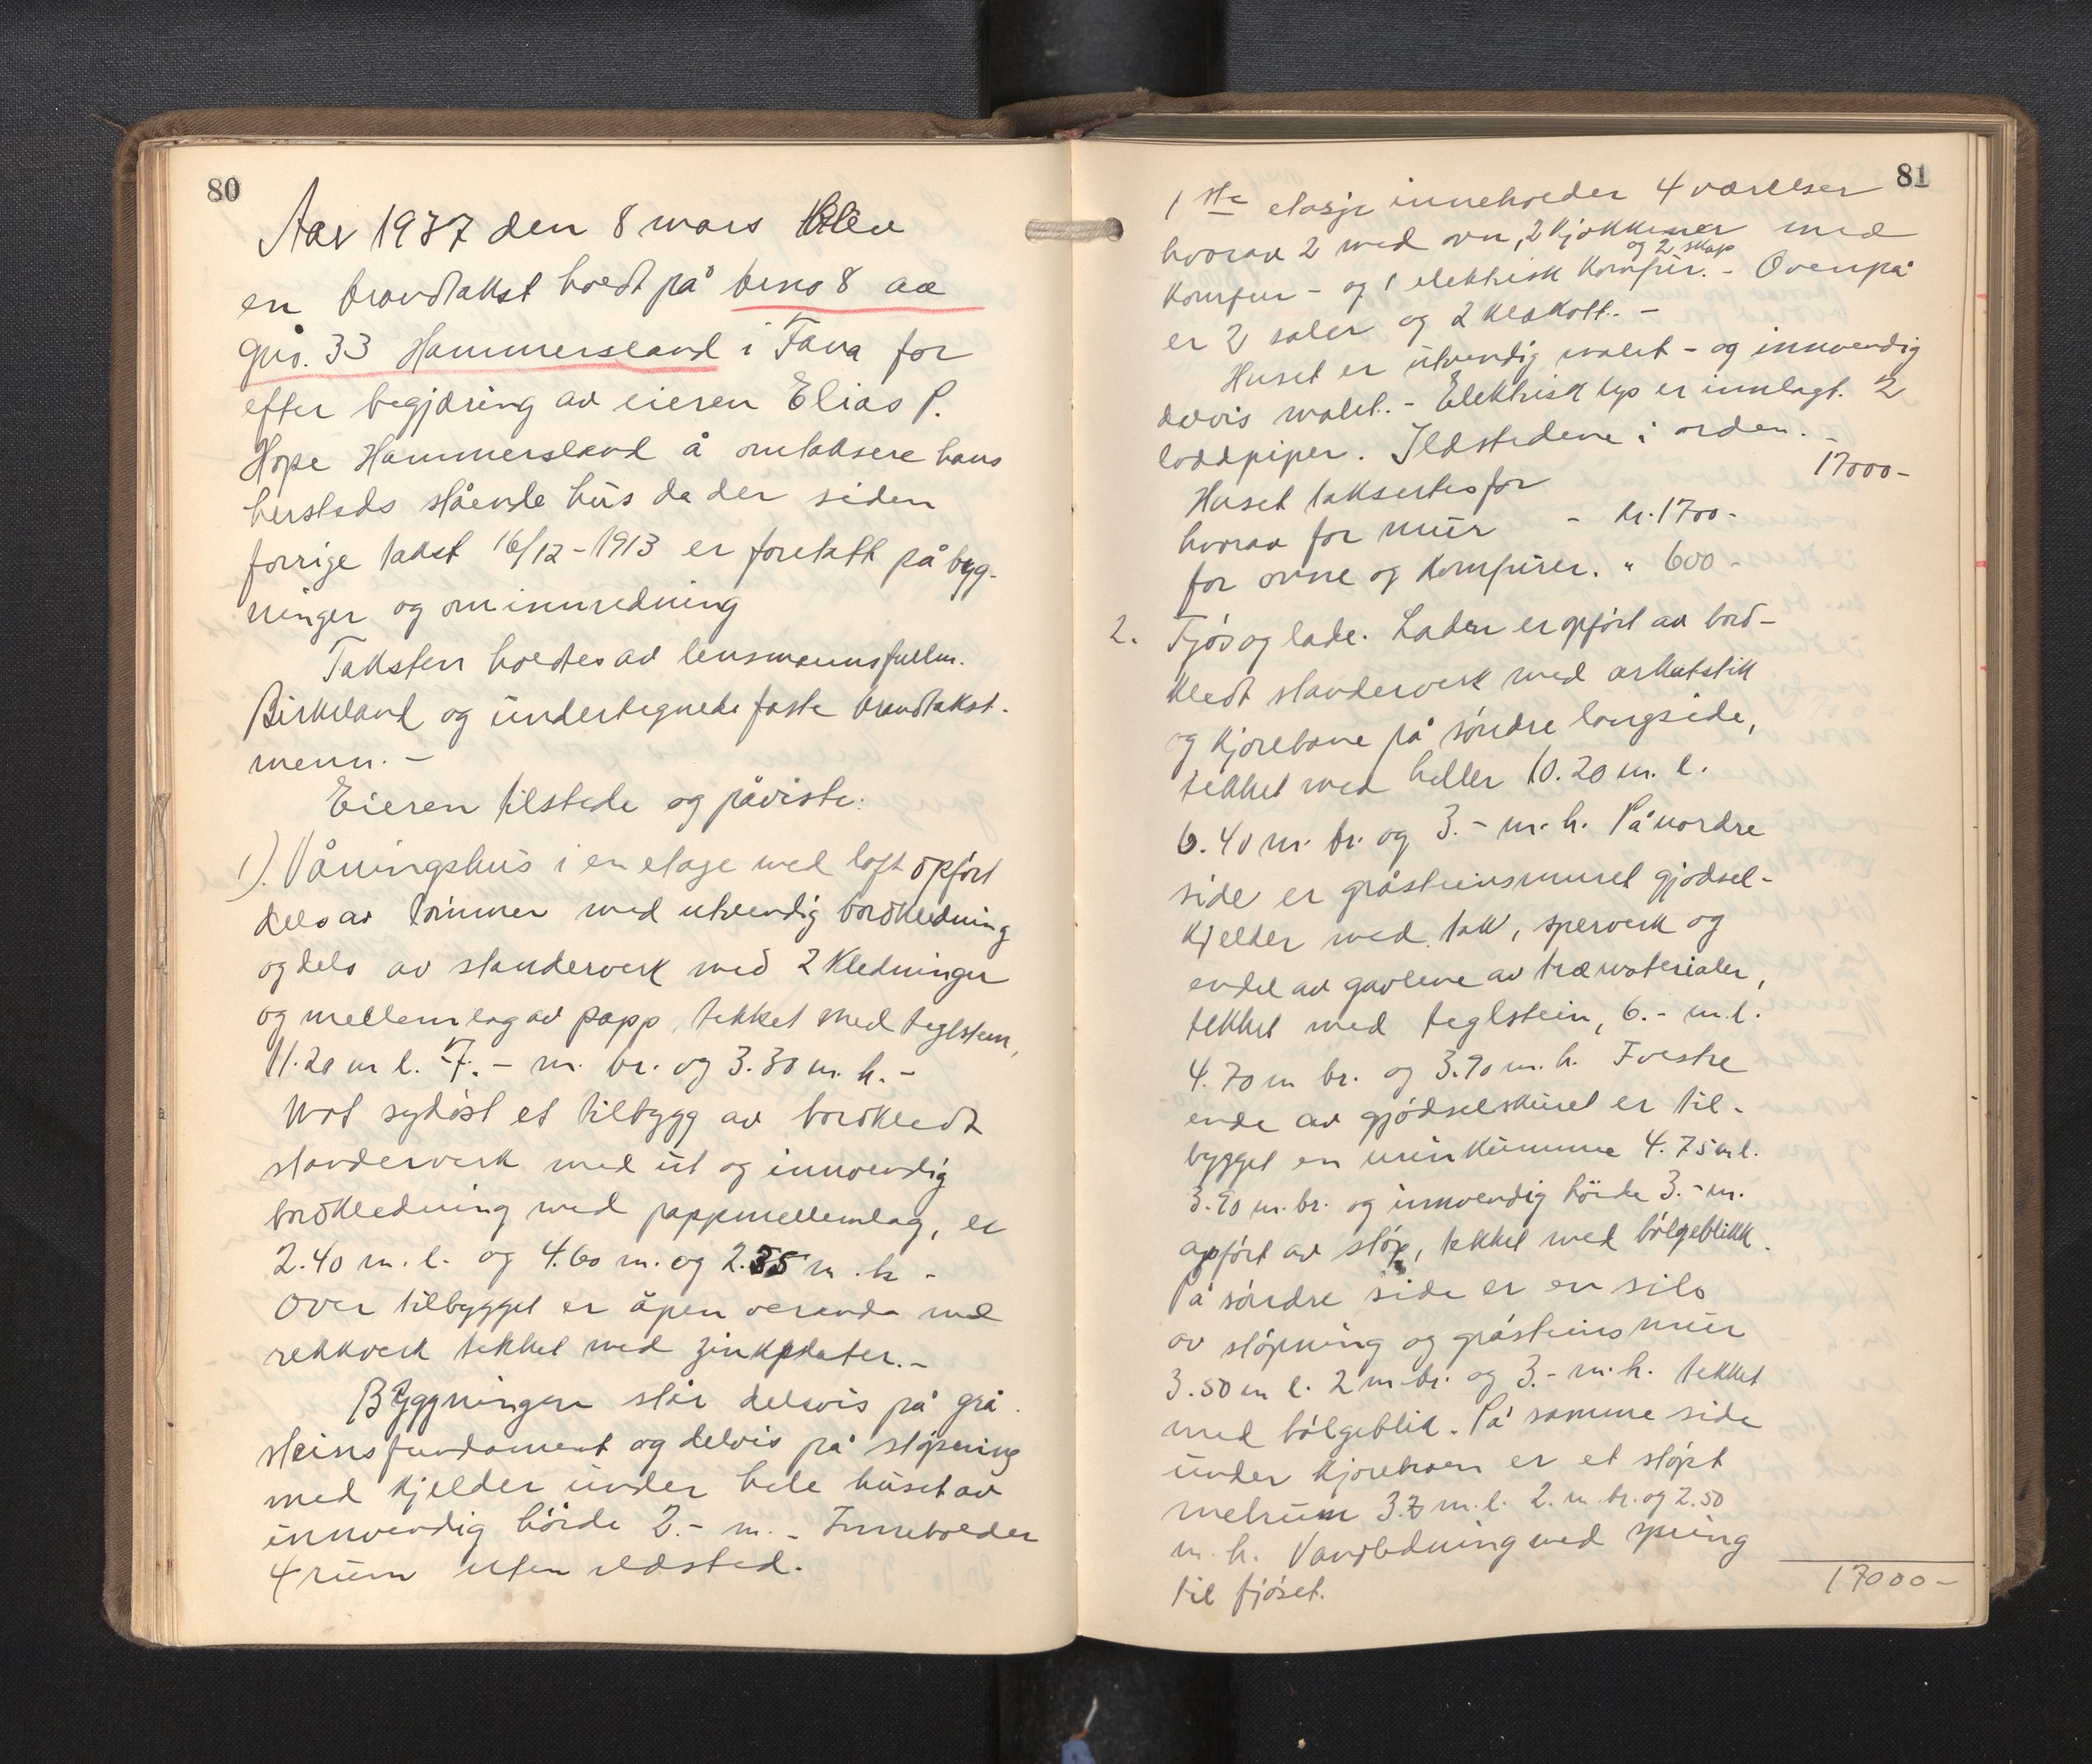 80
Aar 1937 den 8 mars blev
en brandtakst holdt på brno 8 av
gno. 33 Hammersland i Fana for
efter begjæring av eieren Elias P.
Hope Hammersland å omtaksere hans
hersteds stående hus da der siden
forrige takst 16/12-1913 er foretatt påbyg-
ninger og ominnredning
Taksten holdtes av lensmannsfullm.
Birkeland og undertegnede faste brandtakst-
menn. -
Eieren tilstede og påviste:
1). Våningshus i en etage med loft opført
dels av tømmer med utvendig bordkledning
og dels av standerverk med 2 kledninger
og mellemlag av papp, tekket med teglsten,
11.20 m l. 7.- m. br. og 3.30 m. h. -
Mot sydøst et tilbygg av bordkledt
standerverk med ut og innvendig
bordkledning med pappmellemlag, er
2.40 m. l. og 4.60 m. og 2.35 m. h -
Over tilbygget er åpen veranda med
rekkverk tekket med zinkplater. -
Byggningen står delvis på grå-
steinsfundament og delvis på støpning
med kjelder under hele huset av
innvendig høide 2.- m. - Inneholder
4 rum uten ildsted.
81
1ste etasje inneholder 4 værelser
hvorav 2 med ovn, 2 kjøkkener med
og 2 skap
komfur - og 1 elektrisk komfur. - Ovenpå
er 2 saler og 2 kleskott. -
Huset er utvendig malt - og innvendig
delvis malet. - Elektrisk lys er innlagt. 2
loddpiper. Ildstedene i orden. -
Huset taksertes for 17000-
hvorav for mur - kr. 1700-
for ovne og komfurer. " 600-
2. Fjøs og lade. Laden er opført av bord-
kledt standerverk med arkutstikk
og kjørebane på søndre langside,
tekket med heller 10.20 m. l.
6.40 m. br. og 3.- m. h. På nordre
side er gråsteinsmuret gjødsel-
kjelder med tak, sperverk og
endel av gavlene av træmaterialer,
tekket med teglstein, 6.- m. l.
4.70 m br. og 3.70 m. h. I vestre
ende av gjødselskuret er til-
bygget en urinkumme 4.75 m l.
3.90 m. br. og innvendig høide 3.- m.
opført av støp, tekket med bølgeblikk.
På søndre side er en silo
av støpning og gråsteinsmur
3.50 m l. 2 m br. og 3.- m. h. tekket
med bølgeblik. På samme side
under kjørebroen er et støpt
melrum 3.7 m. l. 2. m. br. og 2.50
m. h. Vandledning med spring
til fjøset.
17000-